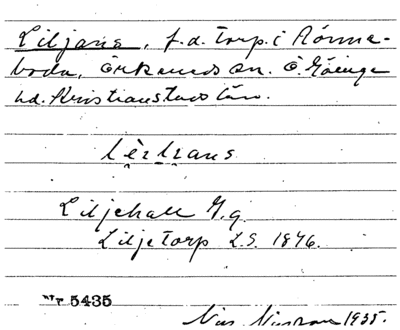 Liljans, f.d. torp. i Rönne-
boda, Örkeneds sn. Ö. Göinge
hd. Kristianstads län.
Liljehall G.g.
Liljetorp L.S. 1876.
5435
Nils 1935.